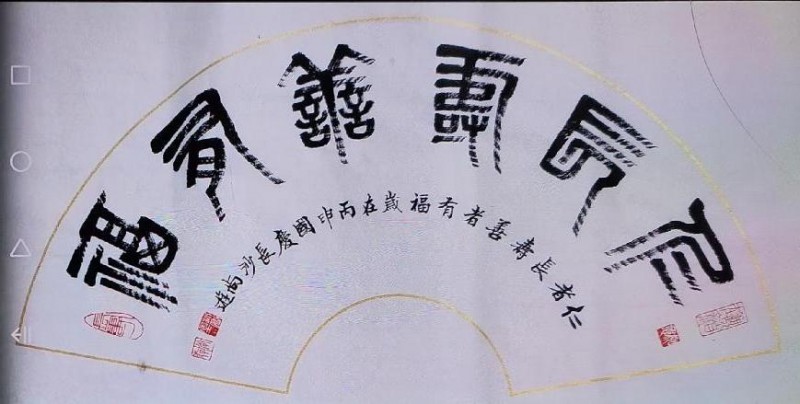 仁長壽善有福
仁者長寿善者有福歲在丙申國慶長沙尚遊